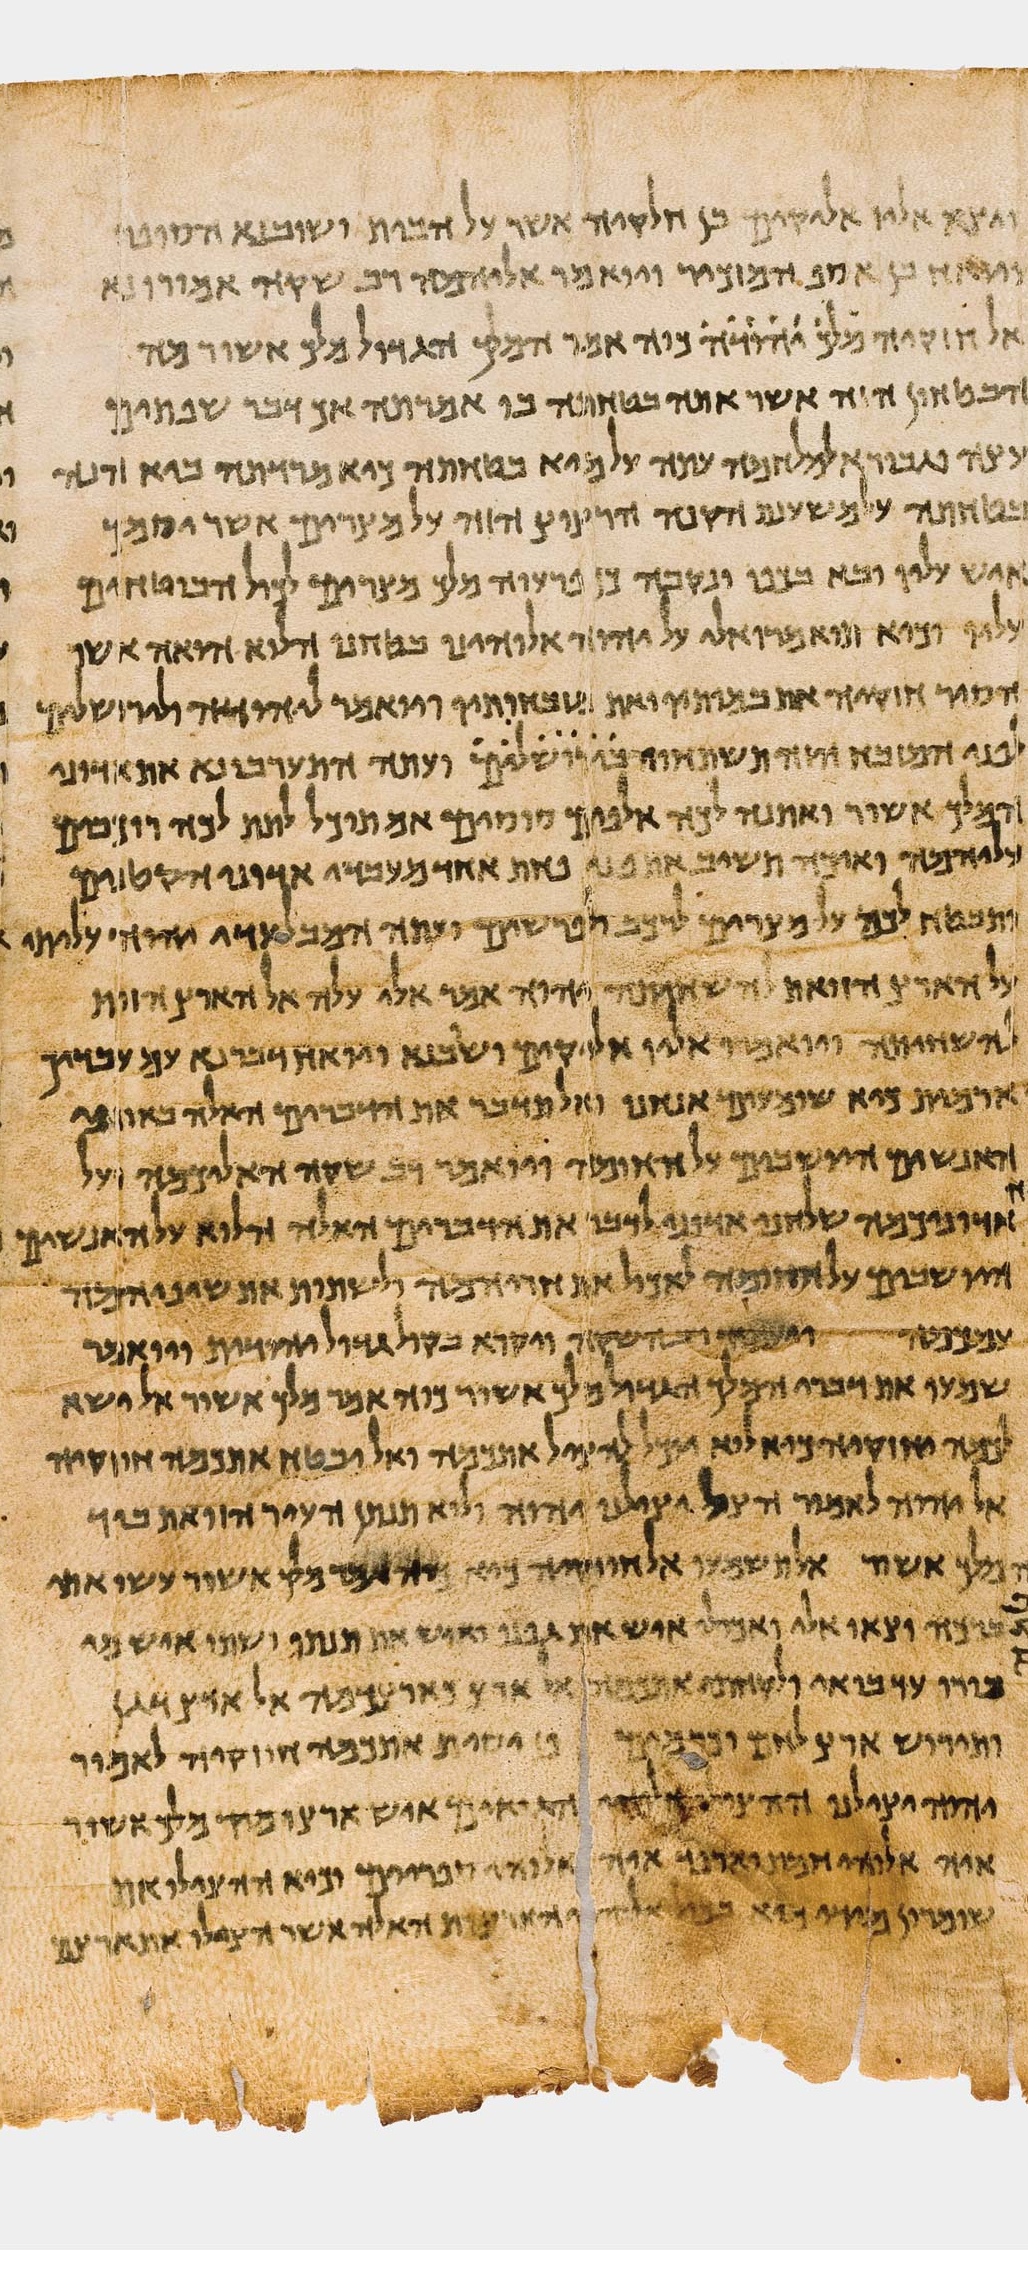 ויצא אליו אליקים בן חלקיה אשר על הבית ושובנא הסופר
ויואח בן אסף המזכיר ויואמר אליהמה רב שקה אמורו נא
אל חזקיה מלך יהודה כוה אמר המלך הגדול מלך אשור מה
הבטחון הזה אשר אתה בטחתה בו אמרתה אך דבר שפתים
עצה וגבורא למלחמה עתה על מיא בטחתה כיא מרדתה ביא הנה
בטחתה על משענת הקנה הרצוץ הזה על מצרים אשר יסמך
איש עליו ובא בכפו ונקבה כן פרעוה מלך מצרים לכול הבוטחים
עליו וכיא תואמרו אלי על יהוה אלוהינו בטחנו הלוא הואה אשר
הסיר חוזקיה את במותיו ואת מזבחותיו ויואמר ליהודה ולירושלים
לפני המזבח הזה תשתחוו בירושלים ועתה התערבו נא את אדוני
המלך אשור ואתנה לכה אלפים סוסים אם תוכל לתת לכה רוכבים
עליהמה ואיכה תשיב את פני פחת אחד מעבדי אדוני הקטנים
ותבטח לכה על מצרים לרכב ולפרשים ועתה המבלעדי יהוה עליתי
על הארץ הזואת להשחיתה יהוה אמר אלי עלה אל הארץ הזות
להשחיתה ויואמרו אליו אליקים ושובנא ויואח דבר נא עם עבדיך
ארמית כיא שומעים אנחנו ואל תדבר את הדברים האלה באוזני
האנשים היושבים על החומה ויואמר רב שקה האליכמה ועל
אדוניכמה שלחני אדוני לדבר את הדברים האלה הלוא על האנשים
היושבים על החומה לאכול את חריהמה ולשתות את שיניהמה
עמכמה ויעמוד רב שקה ויקרא בקול גדול יהודית ויואמר
שמעו את דברי המלך הגדול מלך אשור כוה אמר מלך אשור אל ישא
לכמה חזקיה כיא לוא יוכל להציל אתכמה ואל יבטח אתכמה חזקיה
אל יהוה לאמור הצל יצילנו יהוה ולוא תנתן העיר הזואת ביד
המלך אשור אל תשמעו אל חוזקיה כיא כוה אמר מלך אשור עשו אתי
ברכה וצאו אלי ואכולו איש את גפנו ואיש את תנתו ושתו איש מי
בורו עד בואי ולקחתי אתכמה אל ארץ כארצכמה אל ארץ דגן
ותירוש ארץ לחם וכרמים פן ישית אתכמה חזקיה לאמור
יהוה יצילנו ההצילו אלוהי הגואים איש ארצו מיד מלך אשור
איה אלוהי חמת וארפד איה אלוהי ספריים וכיא ההצילו את
שומרון מידי מיא בכול אלוהי הארצות האלה אשר הצילו את ארצם